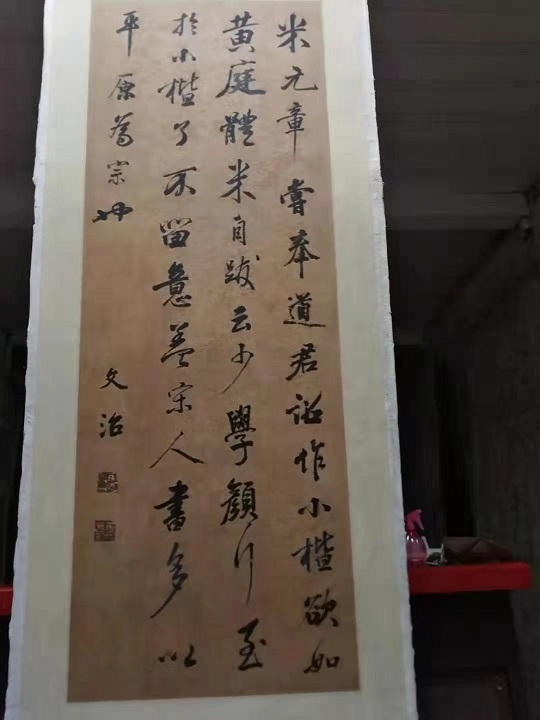 米元章嘗奉道君詔作小楷欲如
黄庭體米自跋云少學顏行至
於小楷了不留意盖宋人書多以
平原為宗也
文治